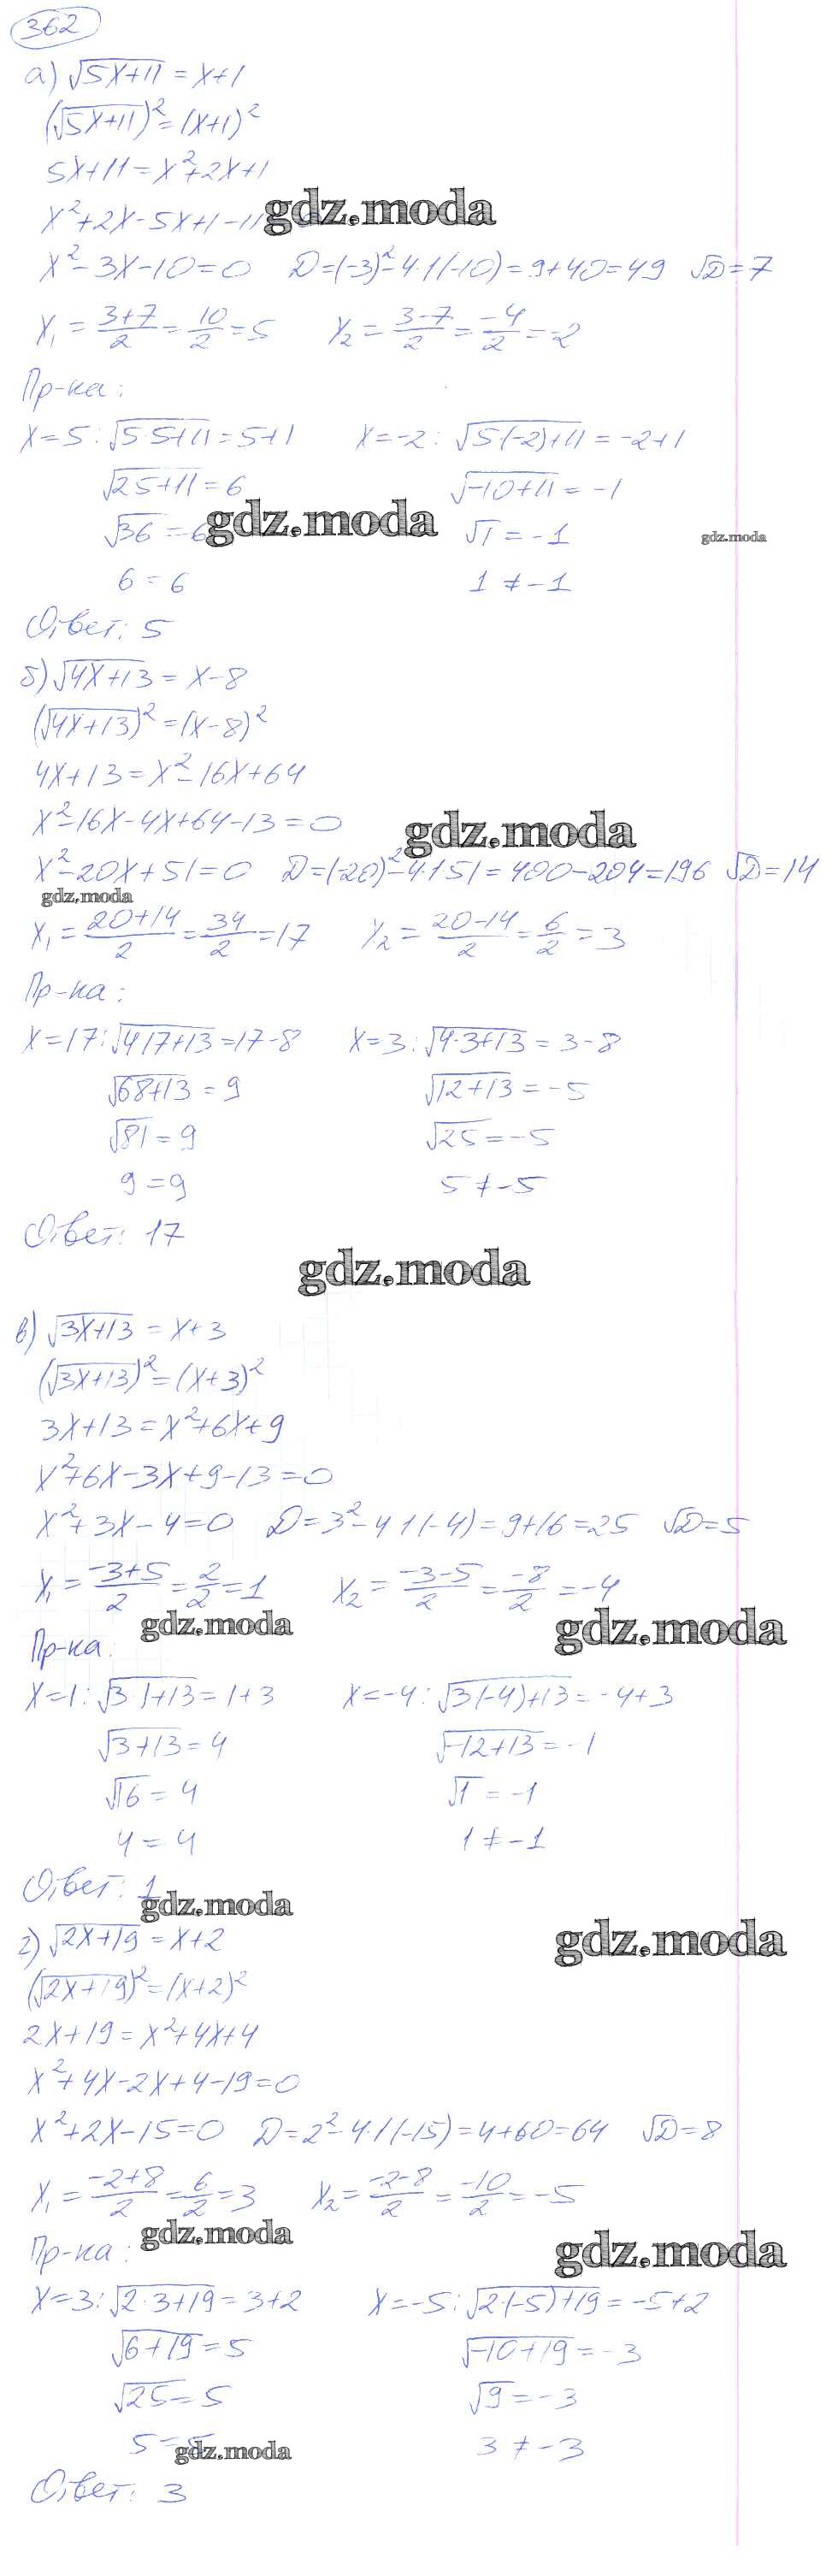 362
а) √5x+11 = x+1
(√5x+11)² = (x+1)²
5x+11 = x²+2x+1
x²+2x-5x+1-11
gdz.moda
x²-3x-10=0 D=(-3)²-4·1(-10)=9+40=49 √D=7
x₁ = 3+7/2 = 10/2 = 5 x₂ = 3-7/2 = -4/2 = -2
Пр-ка:
x=5: √5·5+11 = 5+1 x=-2: √5(-2)+11 = -2+1
√25+11 = 6 √-10+11 = -1
√36 = 6 √1 = -1
gdz.moda
gdz.moda
6 = 6 1 ≠ -1
Ответ: 5
б) √4x+13 = x-8
(√4x+13)² = (x-8)²
4x+13 = x²-16x+64
x²-16x-4x+64-13=0
gdz.moda
x²-20x+51=0 D=(-20)²-4·1·51=400-204=196 √D=14
gdz.moda
x₁ = 20+14/2 = 34/2 = 17 x₂ = 20-14/2 = 6/2 = 3
Пр-ка:
x=17: √4·17+13 = 17-8 x=3: √4·3+13 = 3-8
√68+13 = 9 √12+13 = -5
√81 = 9 √25 = -5
9 = 9 5 ≠ -5
Ответ: 17
gdz.moda
в) √3x+13 = x+3
(√3x+13)² = (x+3)²
3x+13 = x²+6x+9
x²+6x-3x+9-13=0
x²+3x-4=0 D=3²-4·1(-4)=9+16=25 √D=5
x₁ = -3+5/2 = 2/2 = 1 x₂ = -3-5/2 = -8/2 = -4
gdz.moda
gdz.moda
Пр-ка:
x=1: √3·1+13 = 1+3 x=-4: √3(-4)+13 = -4+3
√3+13 = 4 √-12+13 = -1
√16 = 4 √1 = -1
4 = 4 1 ≠ -1
Ответ: 1
gdz.moda
г) √2x+19 = x+2
gdz.moda
(√2x+19)² = (x+2)²
2x+19 = x²+4x+4
x²+4x-2x+4-19=0
x²+2x-15=0 D=2²-4·1(-15)=4+60=64 √D=8
x₁ = -2+8/2 = 6/2 = 3 x₂ = -2-8/2 = -10/2 = -5
gdz.moda
Пр-ка:
gdz.moda
x=3: √2·3+19 = 3+2 x=-5: √2(-5)+19 = -5+2
√6+19 = 5 √-10+19 = -3
√25 = 5 √9 = -3
5 = 5 3 ≠ -3
gdz.moda
Ответ: 3